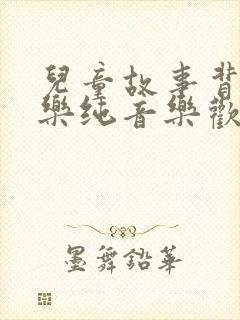 兒童故事背
樂纯音樂歡
墨舞鉛華